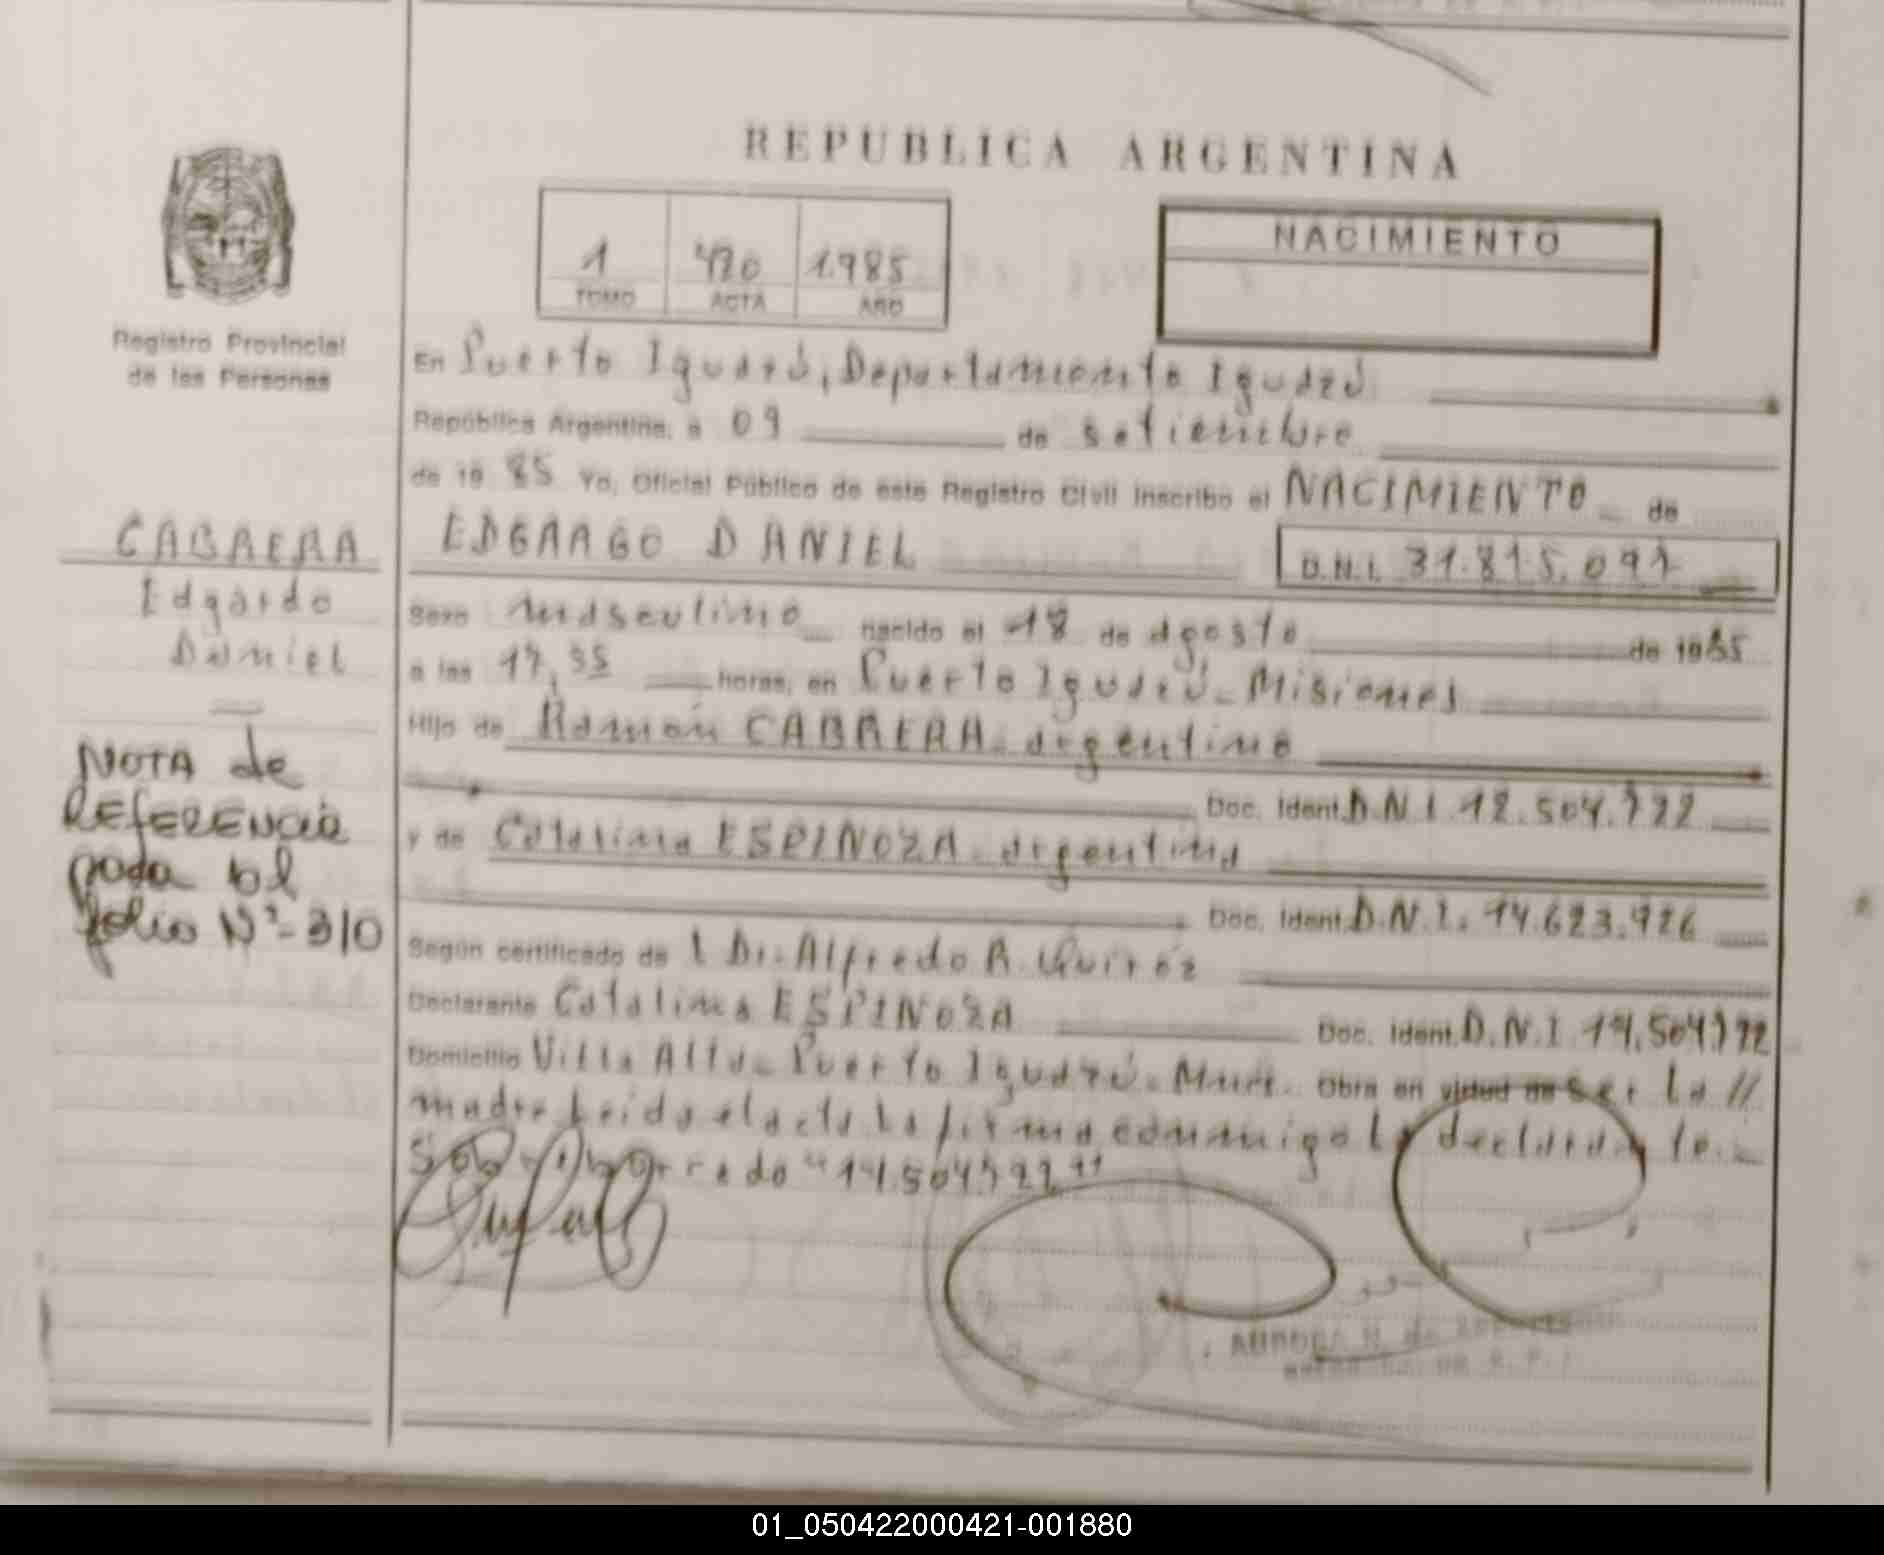 REPUBLICA ARGENTINA
1 420 1.985
TOMO ACTA AÑO
NACIMIENTO
Registro Provincial
de las Personas
En Puerto Iguazú, Departamento Iguazú
República Argentina, a 09 de setiembre
de 19 85 Yo, Oficial Público de este Registro Civil inscribo el NACIMIENTO de
EDGARGO DANIEL D.N.I. 31.815.091
Sexo masculino nacido el 18 de agosto de 1985
a las 17,55 horas, en Puerto Iguazú - Misiones
Hijo de Ramón CABRERA - argentino
Doc. Ident. D.N.I. 12.504.722
y de Catalina ESPINOZA - argentina
Doc. Ident. D.N.I. 14.623.926
Según certificado de l Dr. Alfredo A. Quiróz
Declarante Catalina ESPINOZA Doc. Ident. D.N.I. 14.504.722
Domicilio Villa Alta - Puerto Iguazú - Mnes. Obra en vidud de ser la //
madre Leida el acta la firma conmigo la declarante.-
Sobre borrado "14.504.722"
CABRERA
Edgardo
Daniel
NOTA de
REFERENCIA
pasa al
folio Nº - 310
AURORA
01_050422000421-001880